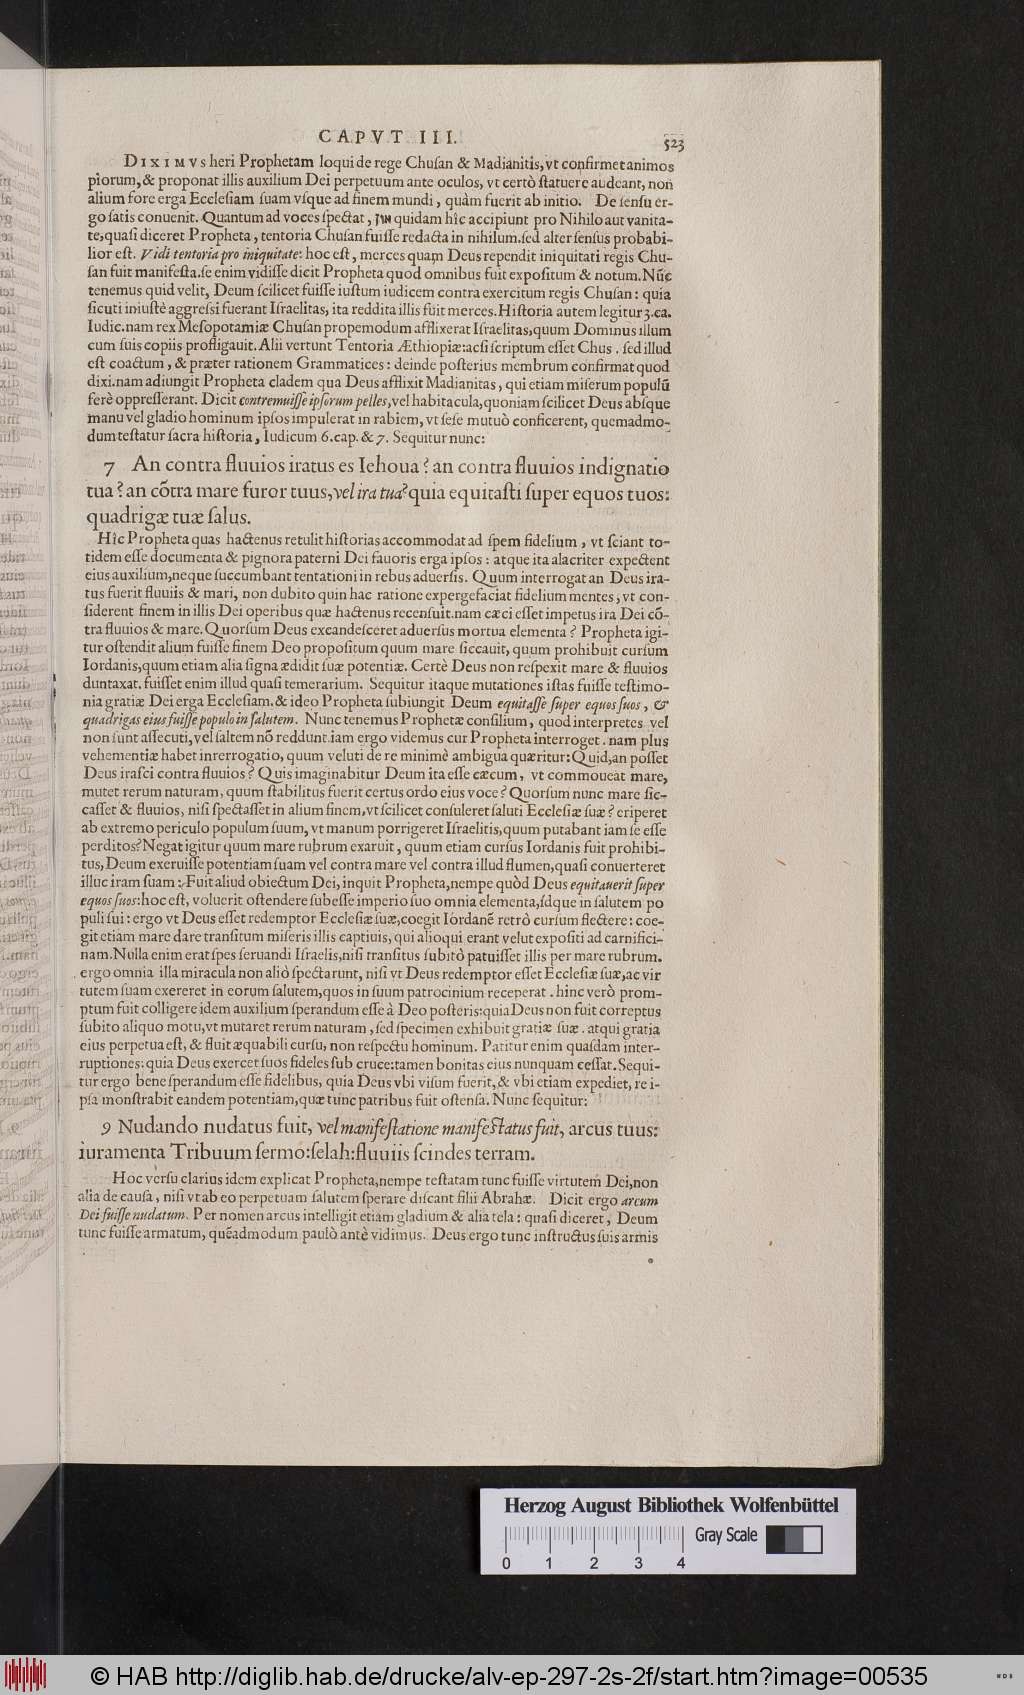 CAPVT III. 523
DIXIMVS heri Prophetam loqui de rege Chuſan & Madianitis, vt confirmet animos
piorum, & proponat illis auxilium Dei perpetuum ante oculos, vt certò ſtatuere audeant, non
alium fore erga Eccleſiam ſuam vſque ad finem mundi, quàm fuerit ab initio. De ſenſu er-
go ſatis conuenit. Quantum ad voces ſpectat, און quidam hîc accipiunt pro Nihilo aut vanita-
te, quaſi diceret Propheta, tentoria Chuſan fuiſſe redacta in nihilum. ſed alter ſenſus probabi-
lior eſt. Vidi tentoria pro iniquitate: hoc eſt, merces quam Deus rependit iniquitati regis Chu-
ſan fuit manifeſta. ſe enim vidiſſe dicit Propheta quod omnibus fuit expoſitum & notum. Nũc
tenemus quid velit, Deum ſcilicet fuiſſe iuſtum iudicem contra exercitum regis Chuſan: quia
ſicuti iniuſtè aggreſſi fuerant Iſraelitas, ita reddita illis fuit merces. Hiſtoria autem legitur 3. ca.
Iudic. nam rex Meſopotamiæ Chuſan propemodum afflixerat Iſraelitas, quum Dominus illum
cum ſuis copiis profligauit. Alii vertunt Tentoria Æthiopiæ: acſi ſcriptum eſſet Chus. ſed illud
eſt coactum, & præter rationem Grammatices: deinde poſterius membrum confirmat quod
dixi. nam adiungit Propheta cladem qua Deus afflixit Madianitas, qui etiam miſerum populũ
ferè oppreſſerant. Dicit contremuiſſe ipſorum pelles, vel habitacula, quoniam ſcilicet Deus abſque
manu vel gladio hominum ipſos impulerat in rabiem, vt ſeſe mutuò conficerent, quemadmo-
dum teſtatur ſacra hiſtoria, Iudicum 6. cap. & 7. Sequitur nunc:
7 An contra fluuios iratus es Iehoua? an contra fluuios indignatio
tua? an cõtra mare furor tuus, vel ira tua? quia equitaſti ſuper equos tuos:
quadrigæ tuæ ſalus.
Hîc Propheta quas hactenus retulit hiſtorias accommodat ad ſpem fidelium, vt ſciant to-
tidem eſſe documenta & pignora paterni Dei fauoris erga ipſos: atque ita alacriter expectent
eius auxilium, neque ſuccumbant tentationi in rebus aduerſis. Quum interrogat an Deus ira-
tus fuerit fluuiis & mari, non dubito quin hac ratione expergefaciat fidelium mentes, vt con-
ſiderent finem in illis Dei operibus quæ hactenus recenſuit. nam cæci eſſet impetus ira Dei cõ-
tra fluuios & mare. Quorſum Deus excandeſceret aduerſus mortua elementa? Propheta igi-
tur oſtendit alium fuiſſe finem Deo propoſitum quum mare ſiccauit, quum prohibuit curſum
Iordanis, quum etiam alia ſigna ædidit ſuæ potentiæ. Certè Deus non reſpexit mare & fluuios
duntaxat. fuiſſet enim illud quaſi temerarium. Sequitur itaque mutationes iſtas fuiſſe teſtimo-
nia gratiæ Dei erga Eccleſiam. & ideo Propheta ſubiungit Deum equitaſſe ſuper equos ſuos, &
quadrigas eius fuiſſe populo in ſalutem. Nunc tenemus Prophetæ conſilium, quod interpretes vel
non ſunt aſſecuti, vel ſaltem nõ reddunt. iam ergo videmus cur Propheta interroget. nam plus
vehementiæ habet inrerrogatio, quum veluti de re minimè ambigua quæritur: Quid, an poſſet
Deus iraſci contra fluuios? Quis imaginabitur Deum ita eſſe cæcum, vt commoueat mare,
mutet rerum naturam, quum ſtabilitus fuerit certus ordo eius voce? Quorſum nunc mare ſic-
caſſet & fluuios, niſi ſpectaſſet in alium finem, vt ſcilicet conſuleret ſaluti Eccleſiæ ſuæ? eriperet
ab extremo periculo populum ſuum, vt manum porrigeret Iſraelitis, quum putabant iam ſe eſſe
perditos? Negat igitur quum mare rubrum exaruit, quum etiam curſus Iordanis fuit prohibi-
tus, Deum exeruiſſe potentiam ſuam vel contra mare vel contra illud flumen, quaſi conuerteret
illuc iram ſuam: Fuit aliud obiectum Dei, inquit Propheta, nempe quòd Deus equitauerit ſuper
equos ſuos: hoc eſt, voluerit oſtendere ſubeſſe imperio ſuo omnia elementa, idque in ſalutem po
puli ſui: ergo vt Deus eſſet redemptor Eccleſiæ ſuæ, coegit Iordanẽ retrò curſum flectere: coe-
git etiam mare dare tranſitum miſeris illis captiuis, qui alioqui erant velut expoſiti ad carnifici-
nam. Nulla enim erat ſpes ſeruandi Iſraelis, niſi tranſitus ſubitò patuiſſet illis per mare rubrum.
ergo omnia illa miracula non aliò ſpectarunt, niſi vt Deus redemptor eſſet Eccleſiæ ſuæ, ac vir
tutem ſuam exereret in eorum ſalutem, quos in ſuum patrocinium receperat. hinc verò prom-
ptum fuit colligere idem auxilium ſperandum eſſe à Deo poſteris: quia Deus non fuit correptus
ſubito aliquo motu, vt mutaret rerum naturam, ſed ſpecimen exhibuit gratiæ ſuæ. atqui gratia
eius perpetua eſt, & fluit æquabili curſu, non reſpectu hominum. Patitur enim quaſdam inter-
ruptiones: quia Deus exercet ſuos fideles ſub cruce: tamen bonitas eius nunquam ceſſat. Sequi-
tur ergo bene ſperandum eſſe fidelibus, quia Deus vbi viſum fuerit, & vbi etiam expediet, re i-
pſa monſtrabit eandem potentiam, quæ tunc patribus fuit oſtenſa. Nunc ſequitur:
9 Nudando nudatus fuit, vel manifeſtatione manifeſtatus fuit, arcus tuus:
iuramenta Tribuum ſermo: ſelah: fluuiis ſcindes terram.
Hoc verſu clarius idem explicat Propheta, nempe teſtatam tunc fuiſſe virtutem Dei, non
alia de cauſa, niſi vt ab eo perpetuam ſalutem ſperare diſcant filii Abrahæ. Dicit ergo arcum
Dei fuiſſe nudatum. Per nomen arcus intelligit etiam gladium & alia tela: quaſi diceret, Deum
tunc fuiſſe armatum, quẽadmodum paulò antè vidimus. Deus ergo tunc inſtructus ſuis armis
Herzog August Bibliothek Wolfenbüttel
Gray Scale
0 1 2 3 4
© HAB http://diglib.hab.de/drucke/alv-ep-297-2s-2f/start.htm?image=00535